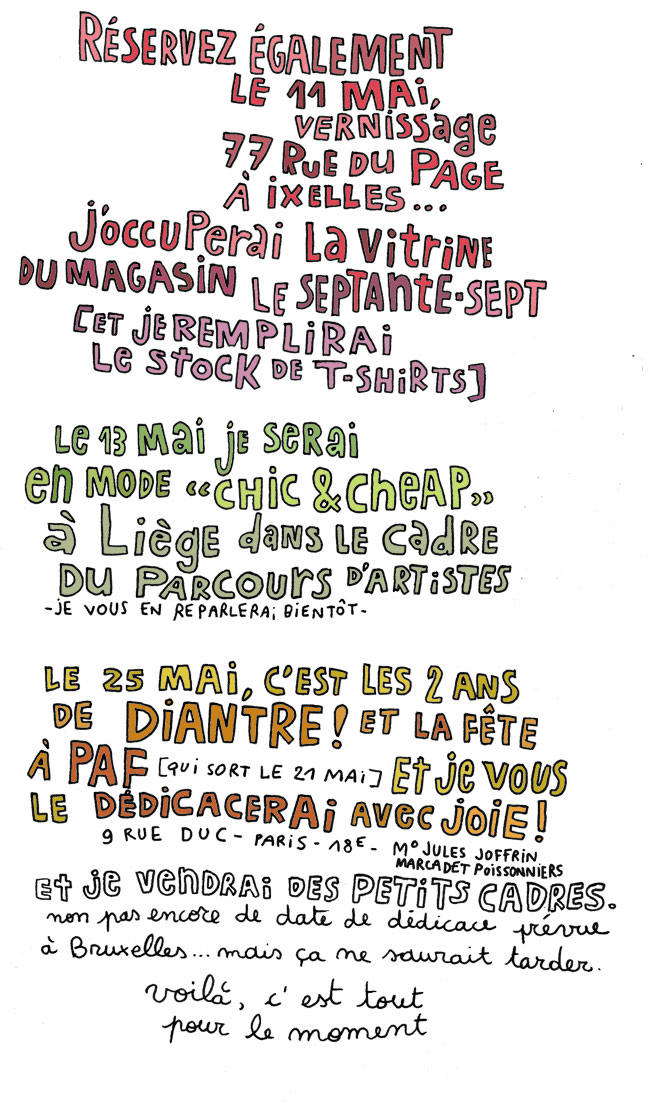 RÉSERVEZ ÉGALEMENT
LE 11 MAi,
VERNissage
77 RUE DU PAGE
À iXELLES...
j'OCCUPerai La vitRiNE
DU MAGASiN LE SEPTANtE-SEPT
[ET jE REMPLiRAi
Le StoCK DE T-SHiRTS]
Le 13 Mai jE SeRai
en MODE «CHiC & CHeAP»
à Liège dans LE CadRE
DU PARCOURS D'ARTiSTES
-jE VOUS EN REPARLERAi BiENTÔT-
LE 25 MAi, C'EST LES 2 ANS
DE DiANTRE! ET LA FÊTE
À PAF [QUi SORT LE 21 MAi] Et je VOUS
LE DÉDiCACERAi AVEC JOiE!
9 RUE DUC - PARiS - 18E - M° JULES JOFFRiN
MARCADET POiSSONNiERS
Et je VENDRAi DES PETiTS CADRES.
non pas encore de date de dédicace prévue
à Bruxelles... mais ça ne saurait tarder.
voilà, c'est tout
pour le moment